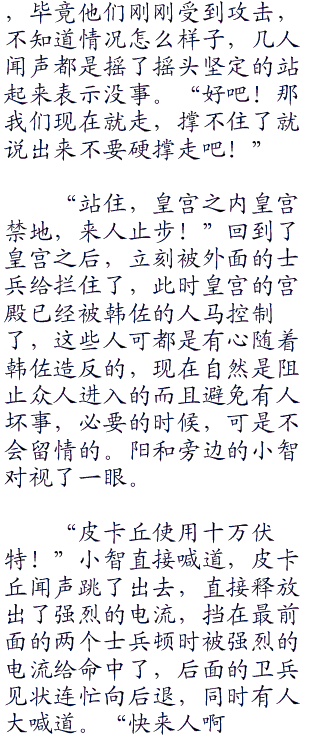 ，毕竟他们刚刚受到攻击，
不知道情况怎么样子，几人
闻声都是摇了摇头坚定的站
起来表示没事。“好吧！那
我们现在就走，撑不住了就
说出来不要硬撑走吧！”
“站住，皇宫之内皇宫
禁地，来人止步！”回到了
皇宫之后，立刻被外面的士
兵给拦住了，此时皇宫的宫
殿已经被韩佐的人马控制
了，这些人可都是有心随着
韩佐造反的，现在自然是阻
止众人进入的而且避免有人
坏事，必要的时候，可是不
会留情的。阳和旁边的小智
对视了一眼。
“皮卡丘使用十万伏
特！”小智直接喊道，皮卡
丘闻声跳了出去，直接释放
出了强烈的电流，挡在最前
面的两个士兵顿时被强烈的
电流给命中了，后面的卫兵
见状连忙向后退，同时有人
大喊道。“快来人啊